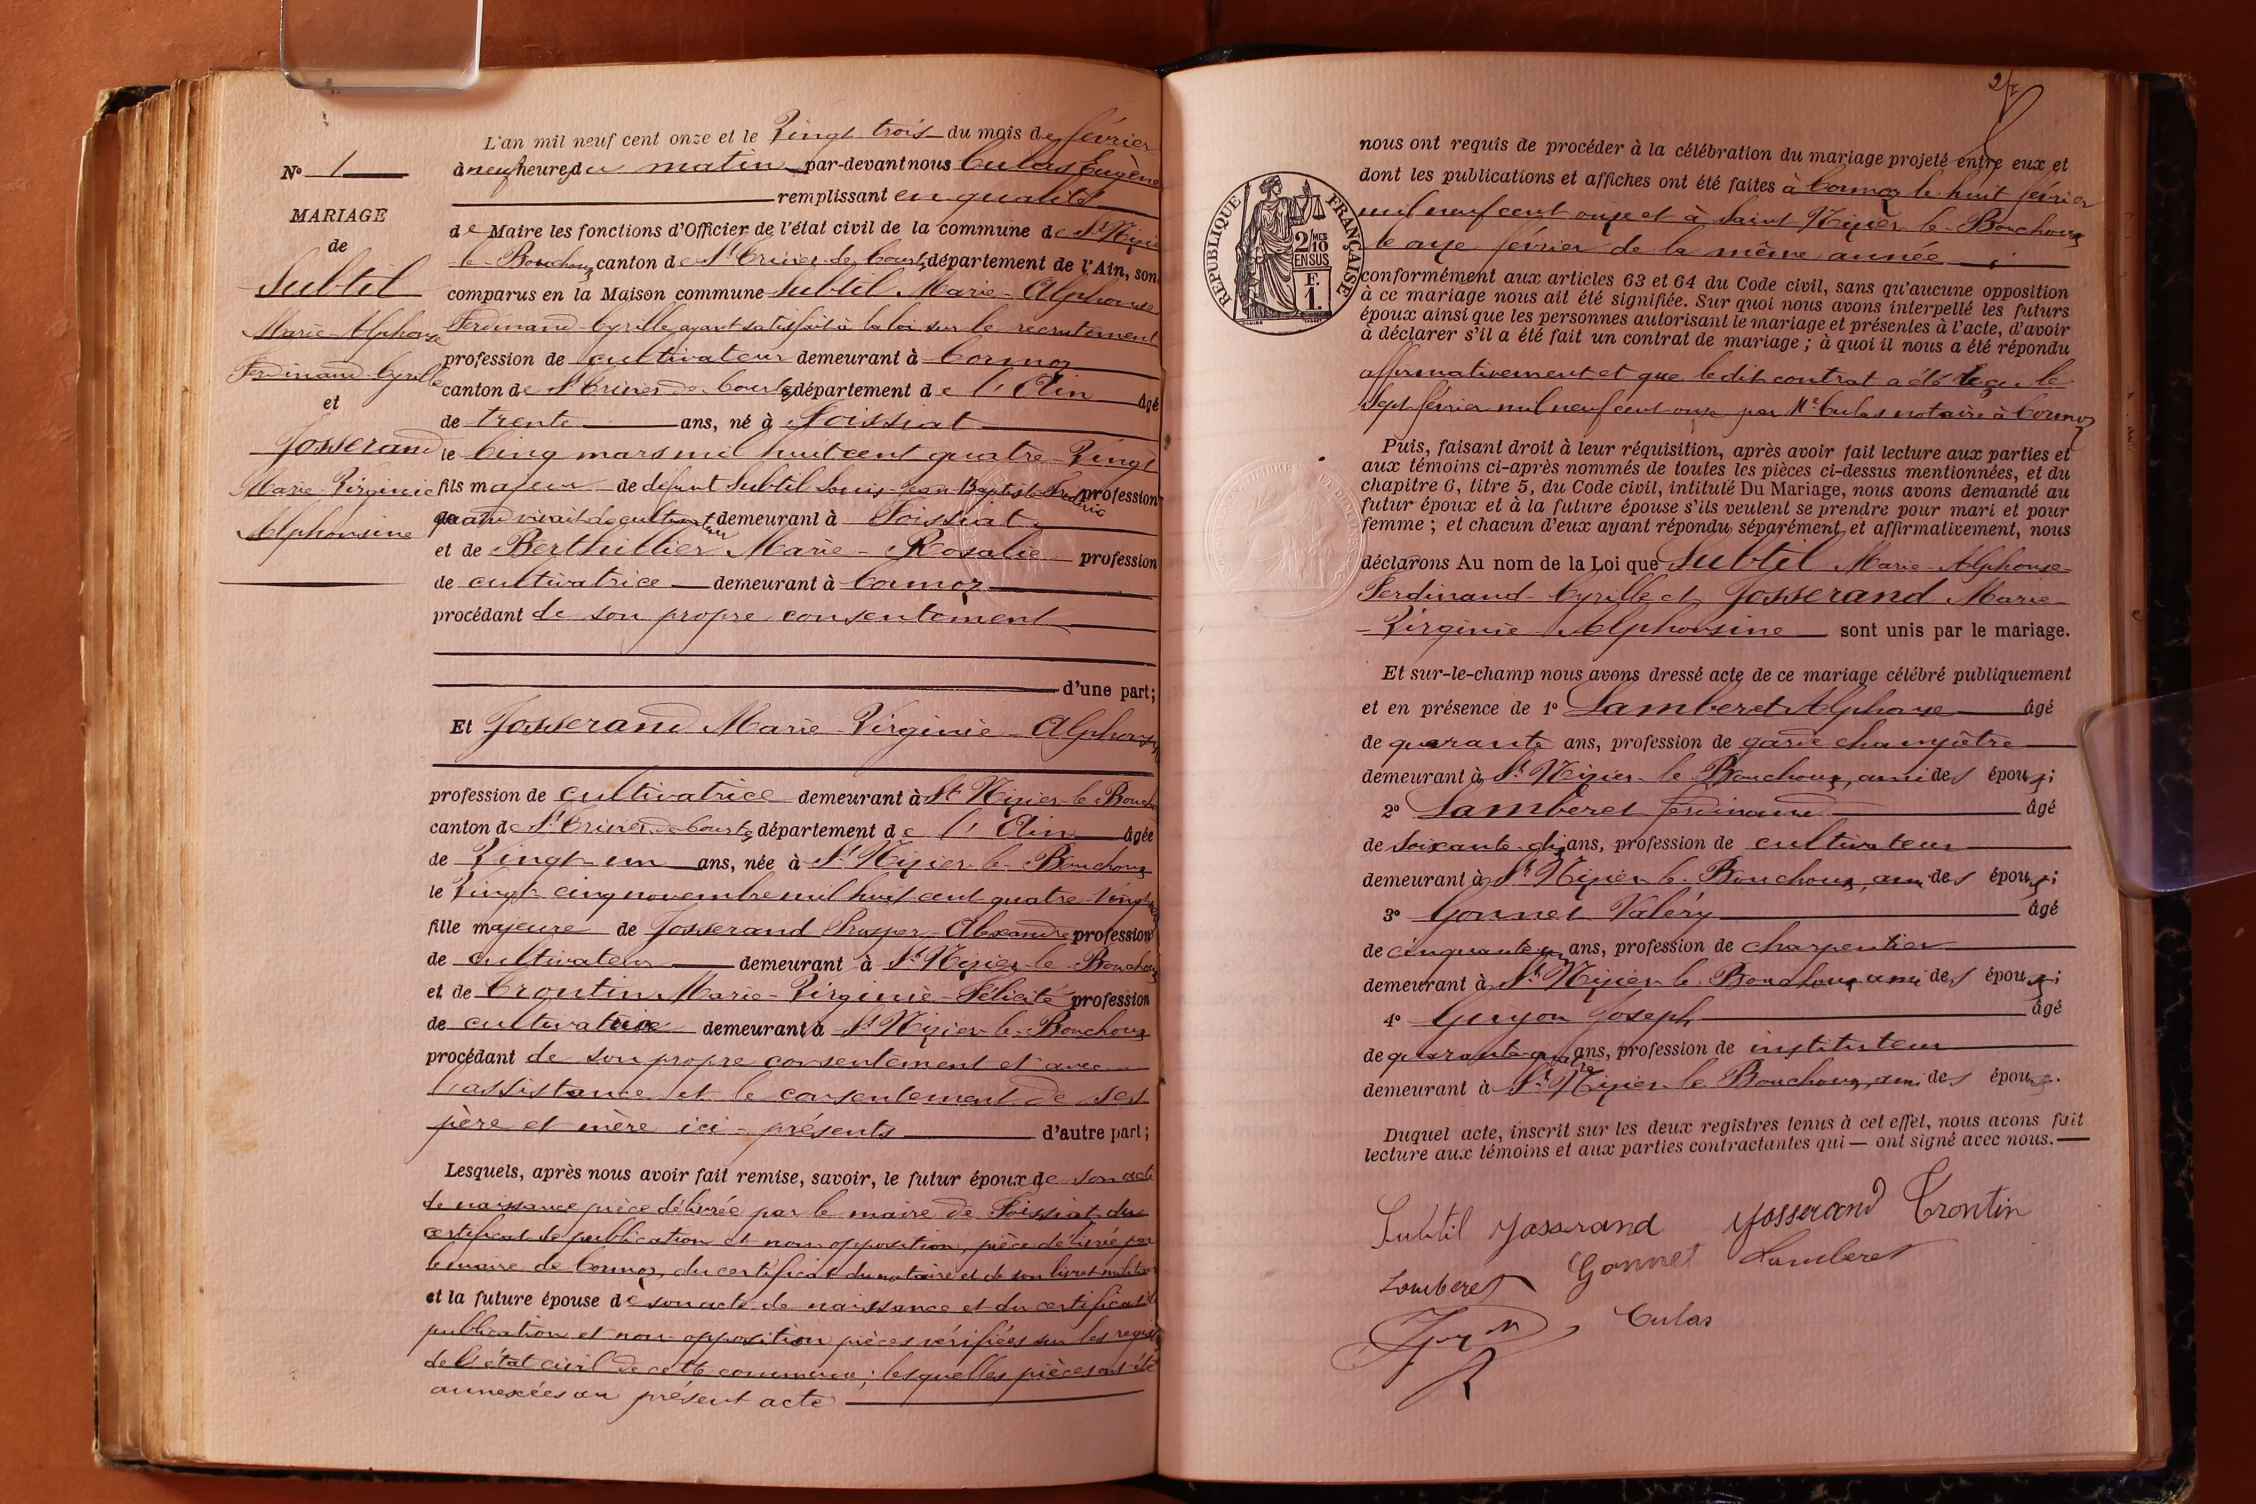 N° 1
MARIAGE
de
Subtil
Marie-Alphonse
Ferdinand-Cyrille
et
Josserand
Marie Virginie
Alphonsine
L'an mil neuf cent onze et le Vingt trois du mois de février
à neuf heures du matin par-devant nous Culas Eugène
remplissant en qualité
de Maire les fonctions d'Officier de l'état civil de la commune de St Nizier
le Bouchoux canton de St Trivier de Courtes département de l'Ain, sont
comparus en la Maison commune Subtil Marie-Alphonse
Ferdinand-Cyrille, ayant satisfait à la loi sur le recrutement
profession de cultivateur demeurant à Cormoz
canton de St Trivier de Courtes département de l'Ain âgé
de trente ans, né à Foissiat
le Cinq mars mil huit cent quatre-Vingt
fils majeur de défunt Subtil Louis-Jean-Baptiste Frédéric profession
quand vivait de cultivateur demeurant à Foissiat
et de Berthillier Marie-Rosalie profession
de cultivatrice demeurant à Cormoz
procédant de son propre consentement
d'une part;
Et Josserand Marie-Virginie-Alphonsine
profession de cultivatrice demeurant à St Nizier-le-Bouchoux
canton de St Trivier-de-Courtes département de l'Ain âgée
de Vingt-un ans, née à St Nizier-le-Bouchoux
le Vingt-cinq novembre mil huit cent quatre-vingt
fille majeure de Josserand Prosper-Alexandre profession
de cultivateur demeurant à St Nizier-le-Bouchoux
et de Trontin Marie-Virginie-Félicité profession
de cultivatrice demeurant à St Nizier-le-Bouchoux
procédant de son propre consentement et avec
l'assistance et le consentement de ses
père et mère ici-présents d'autre part;
Lesquels, après nous avoir fait remise, savoir, le futur époux de son acte
de naissance pièce délivrée par le maire de Foissiat du
certificat de publication et non-opposition, pièce délivrée par
le maire de Cormoz, du certificat du notaire et de son livret militaire
et la future épouse de son acte de naissance et du certificat de
publication et non-opposition pièces vérifiées sur les registres
de l'état civil de cette commune; lesquelles pièces ont été
annexées au présent acte
2/7
RÉPUBLIQUE FRANÇAISE
2/10MES
EN SUS
F.
1.
nous ont requis de procéder à la célébration du mariage projeté entre eux et
dont les publications et affiches ont été faites à Cormoz le huit février
mil neuf cent onze et à Saint Nizier-le-Bouchoux
le onze février de la même année
conformément aux articles 63 et 64 du Code civil, sans qu'aucune opposition
à ce mariage nous ait été signifiée. Sur quoi nous avons interpellé les futurs
époux ainsi que les personnes autorisant le mariage et présentes à l'acte, d'avoir
à déclarer s'il a été fait un contrat de mariage; à quoi il nous a été répondu
affirmativement et que ledit contrat a été reçu le
sept février mil neuf cent onze par Me Culas notaire à Cormoz
Puis, faisant droit à leur réquisition, après avoir fait lecture aux parties et
aux témoins ci-après nommés de toutes les pièces ci-dessus mentionnées, et du
chapitre 6, titre 5, du Code civil, intitulé Du Mariage, nous avons demandé au
futur époux et à la future épouse s'ils veulent se prendre pour mari et pour
femme; et chacun d'eux ayant répondu séparément et affirmativement, nous
déclarons Au nom de la Loi que Subtil Marie-Alphonse-
Ferdinand-Cyrille et Josserand Marie-
-Virginie-Alphonsine sont unis par le mariage.
Et sur-le-champ nous avons dressé acte de ce mariage célébré publiquement
et en présence de 1° Lamberet Alphonse âgé
de quarante ans, profession de garde champêtre
demeurant à St Nizier-le-Bouchoux, ami des époux;
2° Lamberet Ferdinand âgé
de soixante-dix ans, profession de cultivateur
demeurant à St Nizier-le-Bouchoux, ami des époux;
3° Gonnet Valéry âgé
de cinquante un ans, profession de charpentier
demeurant à St Nizier-le-Bouchoux ami des époux;
4° Guyon Joseph âgé
de quarante-quatre ans, profession de instituteur
demeurant à St Nizier-le-Bouchoux, ami des époux.
Duquel acte, inscrit sur les deux registres tenus à cet effet, nous avons fait
lecture aux témoins et aux parties contractantes qui — ont signé avec nous.
Subtil Josserand Josserand Trontin
Lamberet Gonnet Lamberet
Guyon Culas